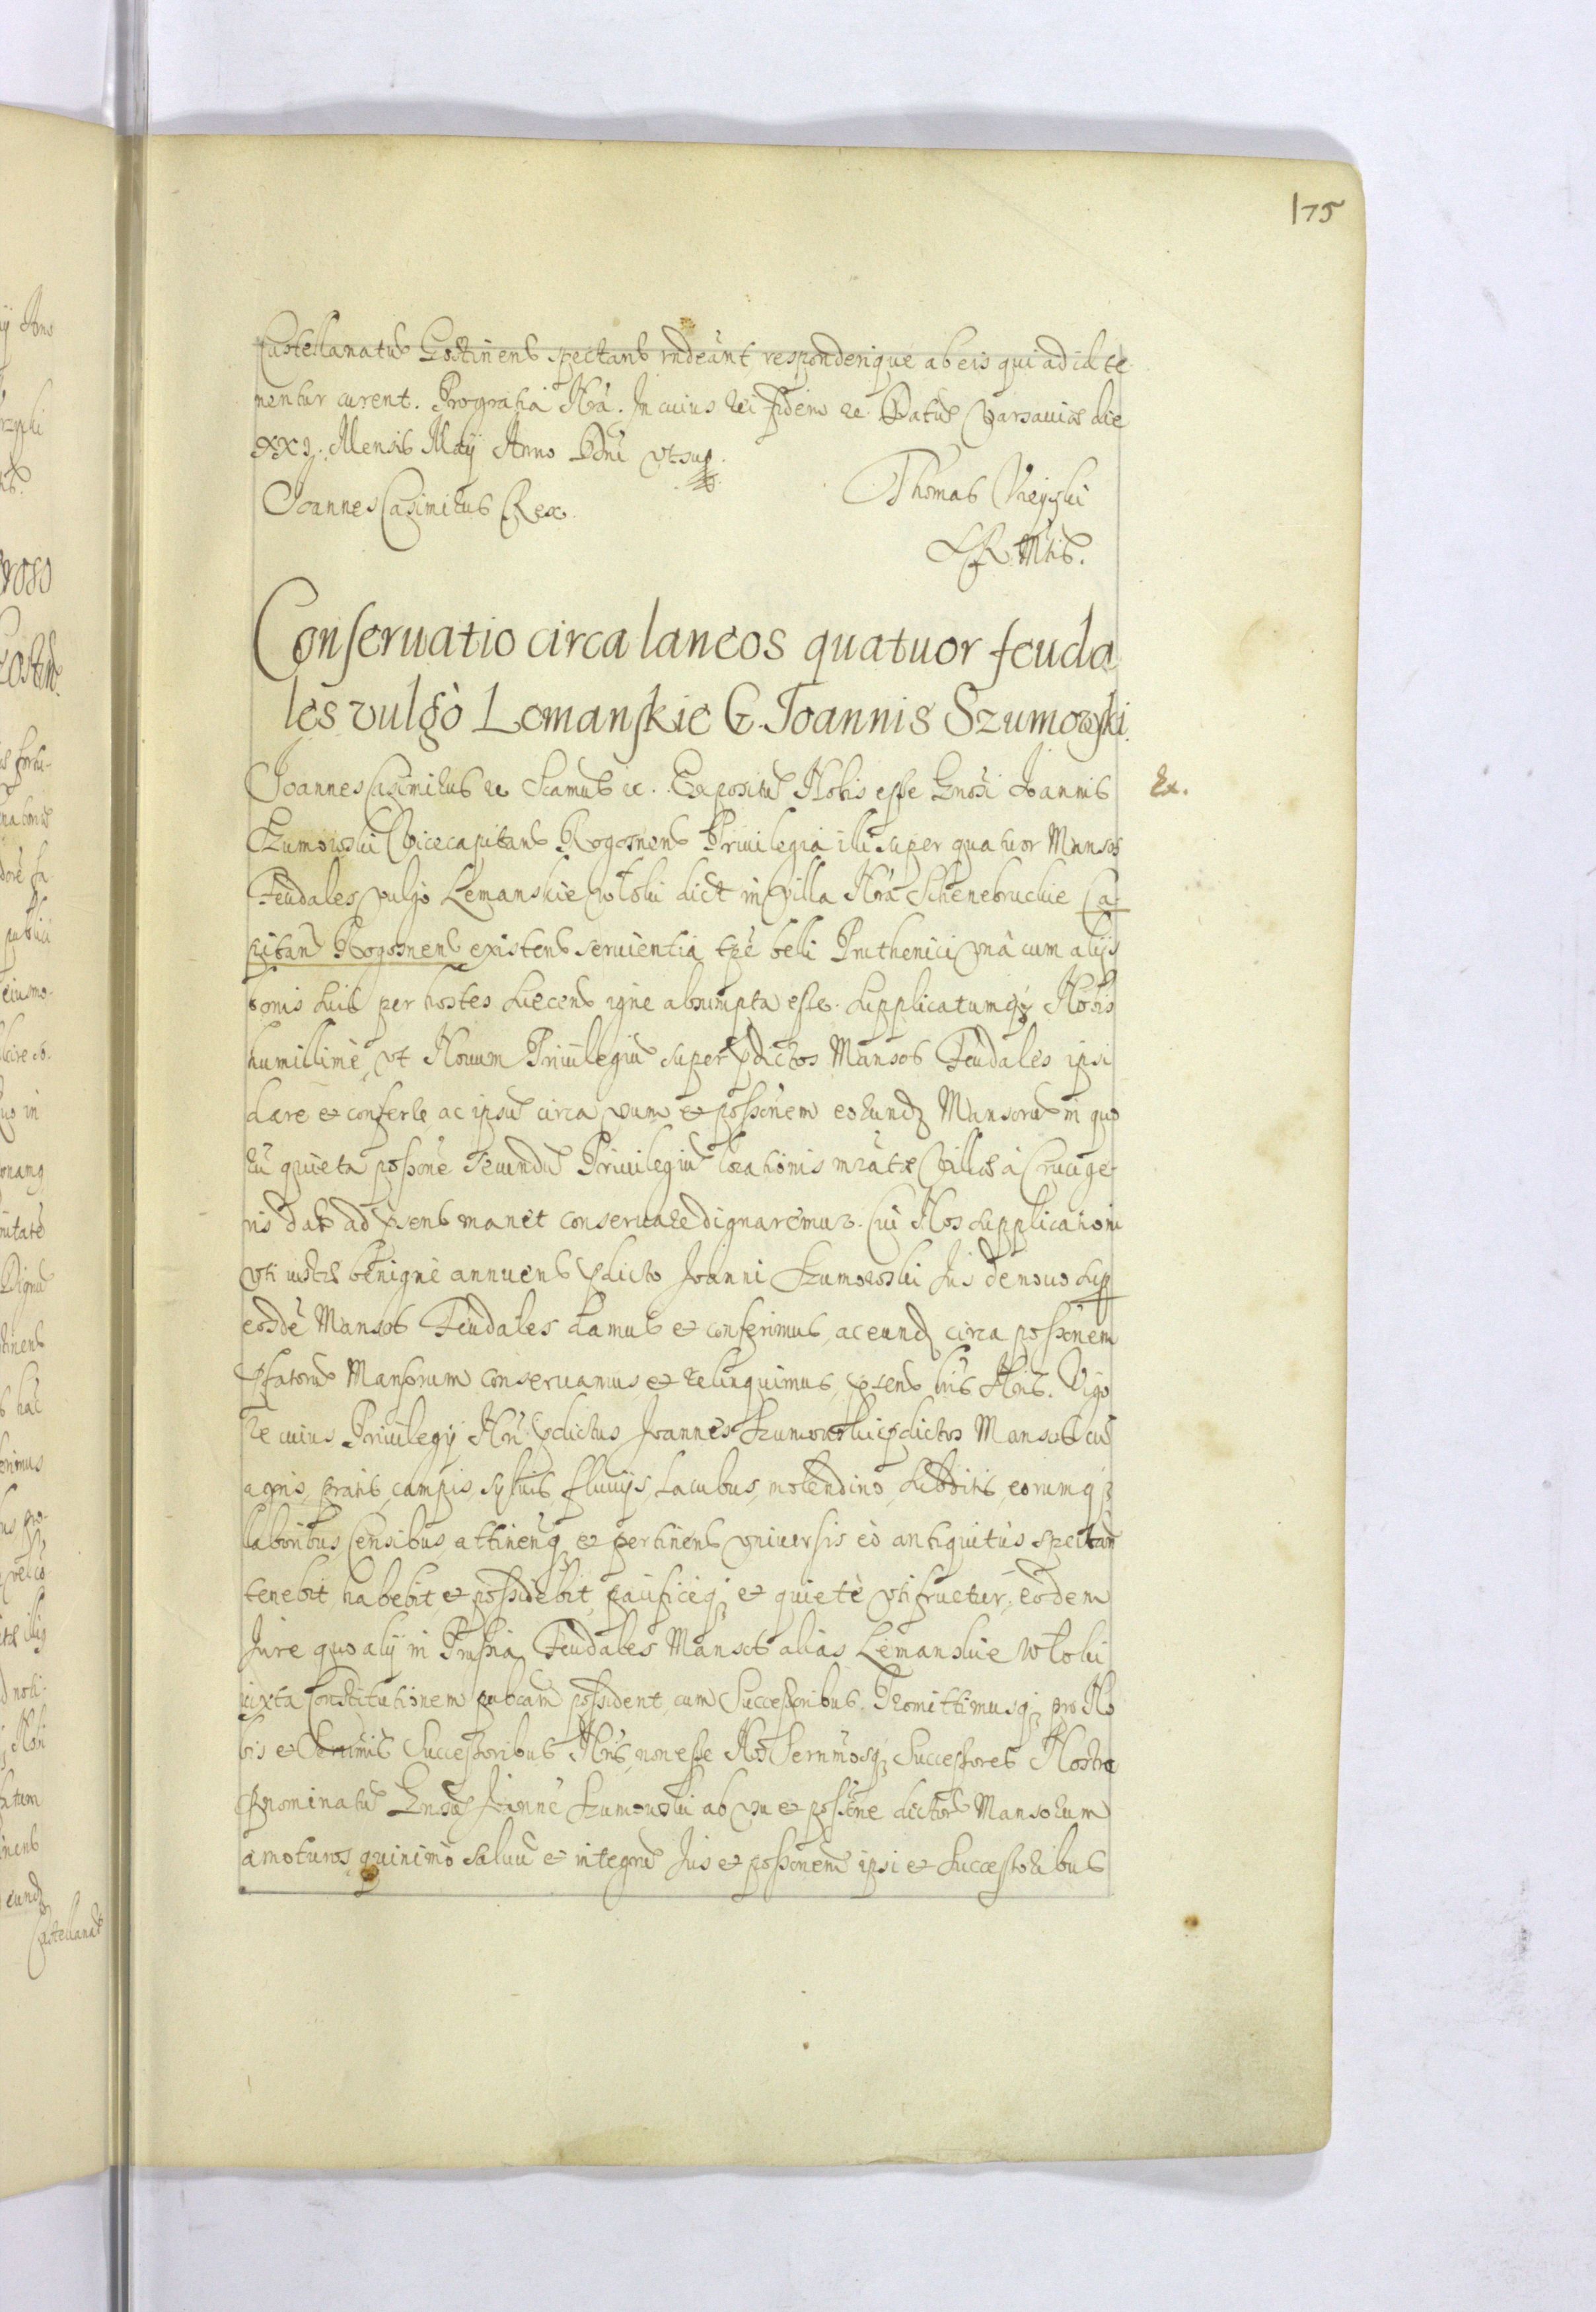 175
Castellanatus Gostinens spectans rndeant, responderique ab eis qui ad id te
nentur curent. Pro gratia Nra. In cuius rei fidem etc. Datus Varsaviæ die
XXI. Mensis Maÿ Anno Dni vt sup.
Joannes Casimirus Rex.
Thomas Uieyski
S R Mtis.
Conseruatio circa laneos quatuor feuda
les vulgò Lemanskie G. Joannis Szumowski.
Joannes Casimirus etc Sićamus etc. Expositũ Nobis esse Gnosi Joannis
Ex.
Szumowski Vicecapitans Rogosnens Priuilegia illi super quatuor Mansos
Feudales vulgo Lemanskie włoki dict in Villa Nrã Schenebruckie Ca-
pitans Rogosnens existens seruientia tpe belli Pruthenici vnà cum alijs
bonis suis per hostes Suecens igne absumpta esse. Supplicatumq; Nobis
humillimè, vt Nouum Priuilegiũ super pdictos Mansos Feudales ipsi
dare et conferre ac ipsũ circa vsum et possonem eorund Mansorũ in quo
rũ quieta possone secundũ Priuilegiũ locationis mratæ Villæ à Crucige-
ris dat ad psens manet conseruare dignaremur. Cui Nos supplicationi
vti iustæ benignè annuens pdicto Joanni Szumowski Jus denouo sup
eosdẽ Mansos Feudales damus et conferimus, ac eund circa possonem
pfatorũ Mansorum conseruamus, et relinquimus, psens lris Nris. Vigo
re cuius Priuilegÿ Nri pdictus Joannes Szumowski pdictos Mansos cũ
agris, pratis, campis, syluis, fluuijs, Lacubus, molendino, subditis, eorumq;
laboribus Censibus, attinenq; et pertinens vniuersis eò antiquitus spectan
tenebit habebit, et possidebit, pacificèq; et quietè vti fructur, eodem
Jure quo alÿ in Prussia Feudales Mansos alias Lemanskie włoki
iuxta Constitutionem pubcam possident, cum Successoribus. Promittimusq; pro No
bis et Serenmis Successoribus Nris, non esse Nos Sernmosq; Successores Nostros
pnominatũ Gnosũ Joannẽ Szumowski ab vsu et possone dictorũ Mansorum
amoturos, quinimò saluũ et integrũ Jus et possonem ipsi et Successoribus